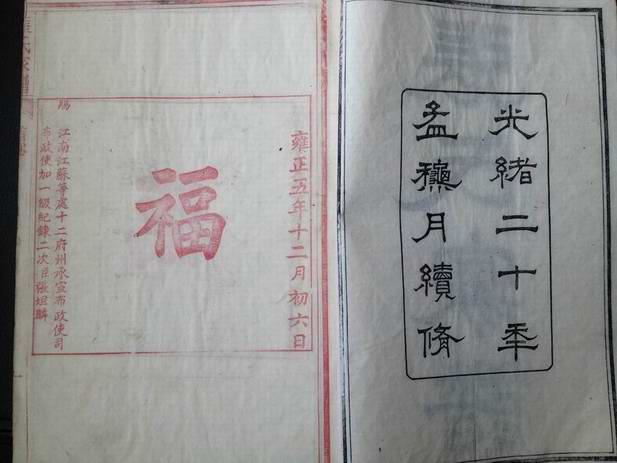 光緒二十年
孟龝月續脩
雍正五年十二月初六日
福
賜
江南江蘇等處十二府州承宣布政使司
布政使加一級紀錄二次臣張坦麟